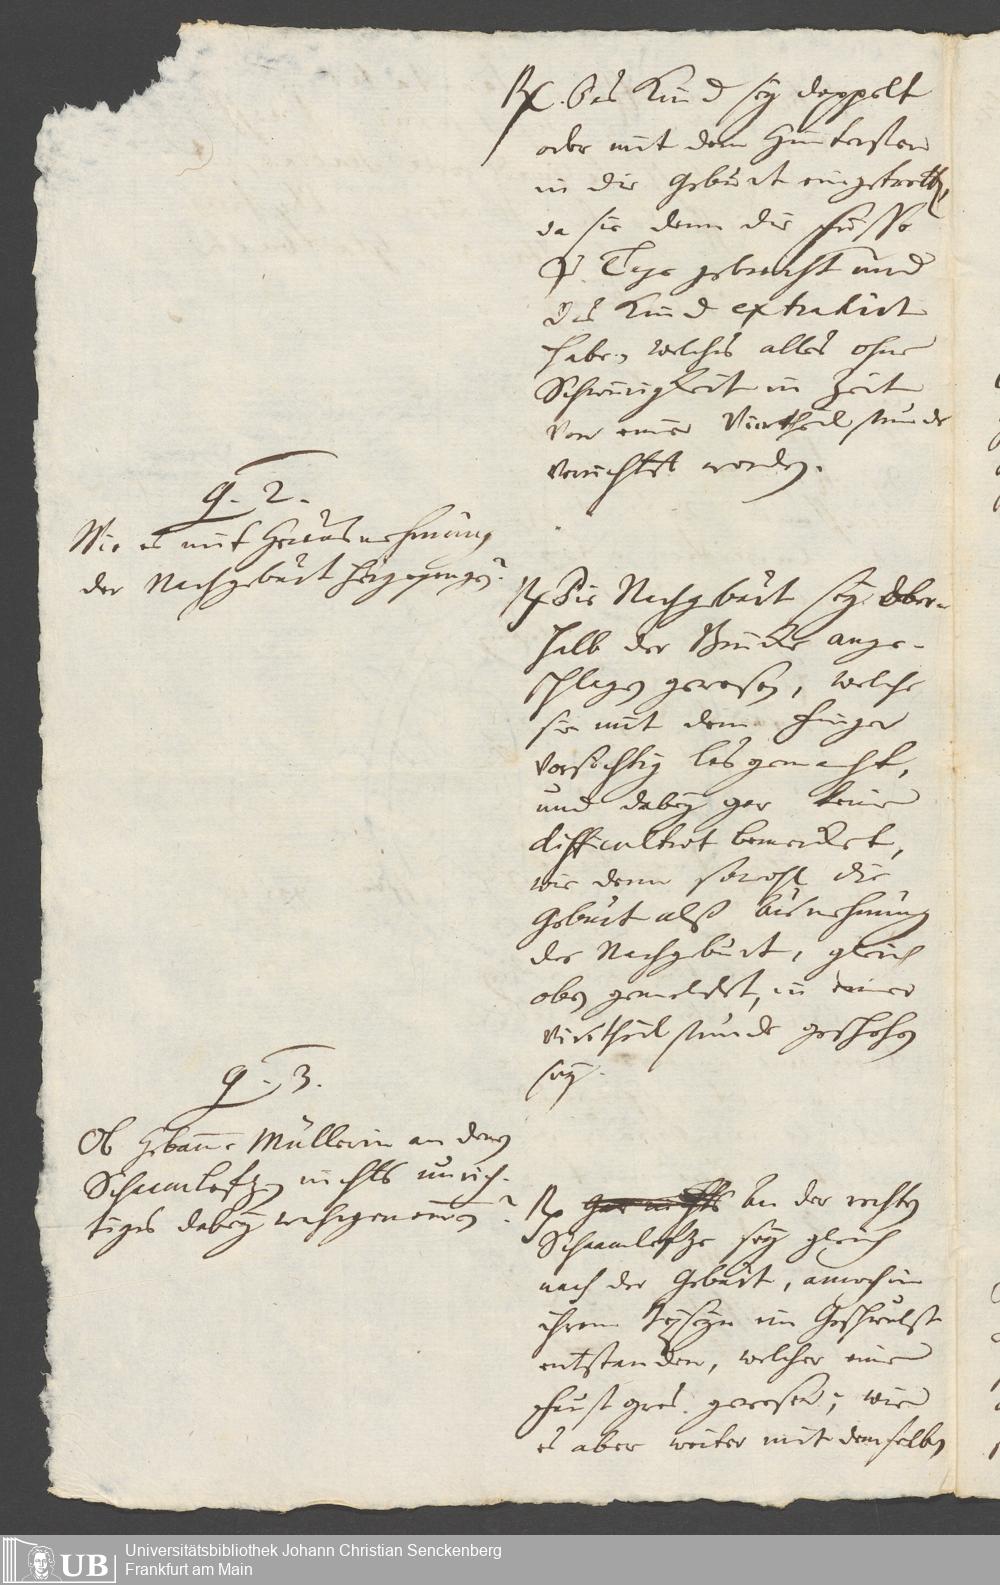 Rx. Das Kind sey doppelt
oder mit dem Hintersten
in die Geburt eingetretten,
da sie denn die Füsse
zu Tage gebracht und
das Kind extrahirt
habe, welches alles ohne
Schwürigkeit in Zeit
von einer Viertheil stunde
verrichtet worden.
q. 2.
Wie es mit Herausnehmung
der Nachgeburt hergegangen?
Rx Die Nachgeburt sey ober-
halb der Brücke ange-
schlagen gewesen, welche
sie mit dem Finger
vorsichtig los gemacht,
und dabey gar keine
difficultaet bemercket,
wie denn sowohl die
Geburt alß Ausnehmung
der Nachgeburt, gleich
oben gemeldet, in einer
viertheil stunde geschehen
sey.
q. 3.
Ob Hebamme Müllerin an denen
Schaamlefzen nichts unrich-
tiges dabey wahrgenommen?
Rx gar nichts An der rechten
Schaamlefze sey gleich
nach der Geburt, annoch in
ihrem Beyseyn ein Geschwulst
entstanden, welcher einer
Faust gros gewesen; wie
es aber weiter mit demselben
UB
Universitätsbibliothek Johann Christian Senckenberg
Frankfurt am Main